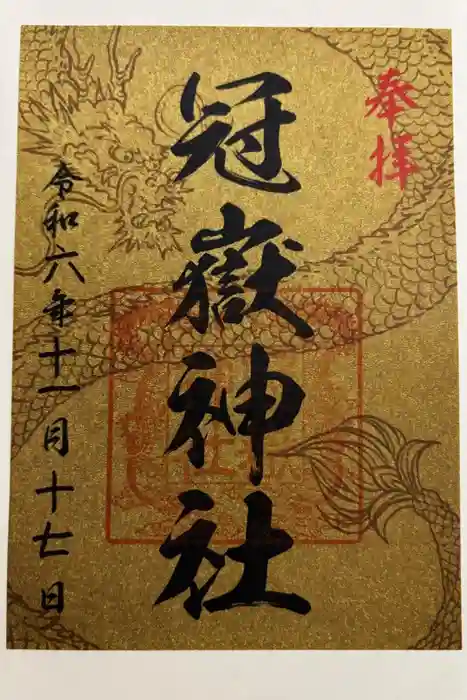 奉拝
冠嶽神社
令和六年十一月十七日